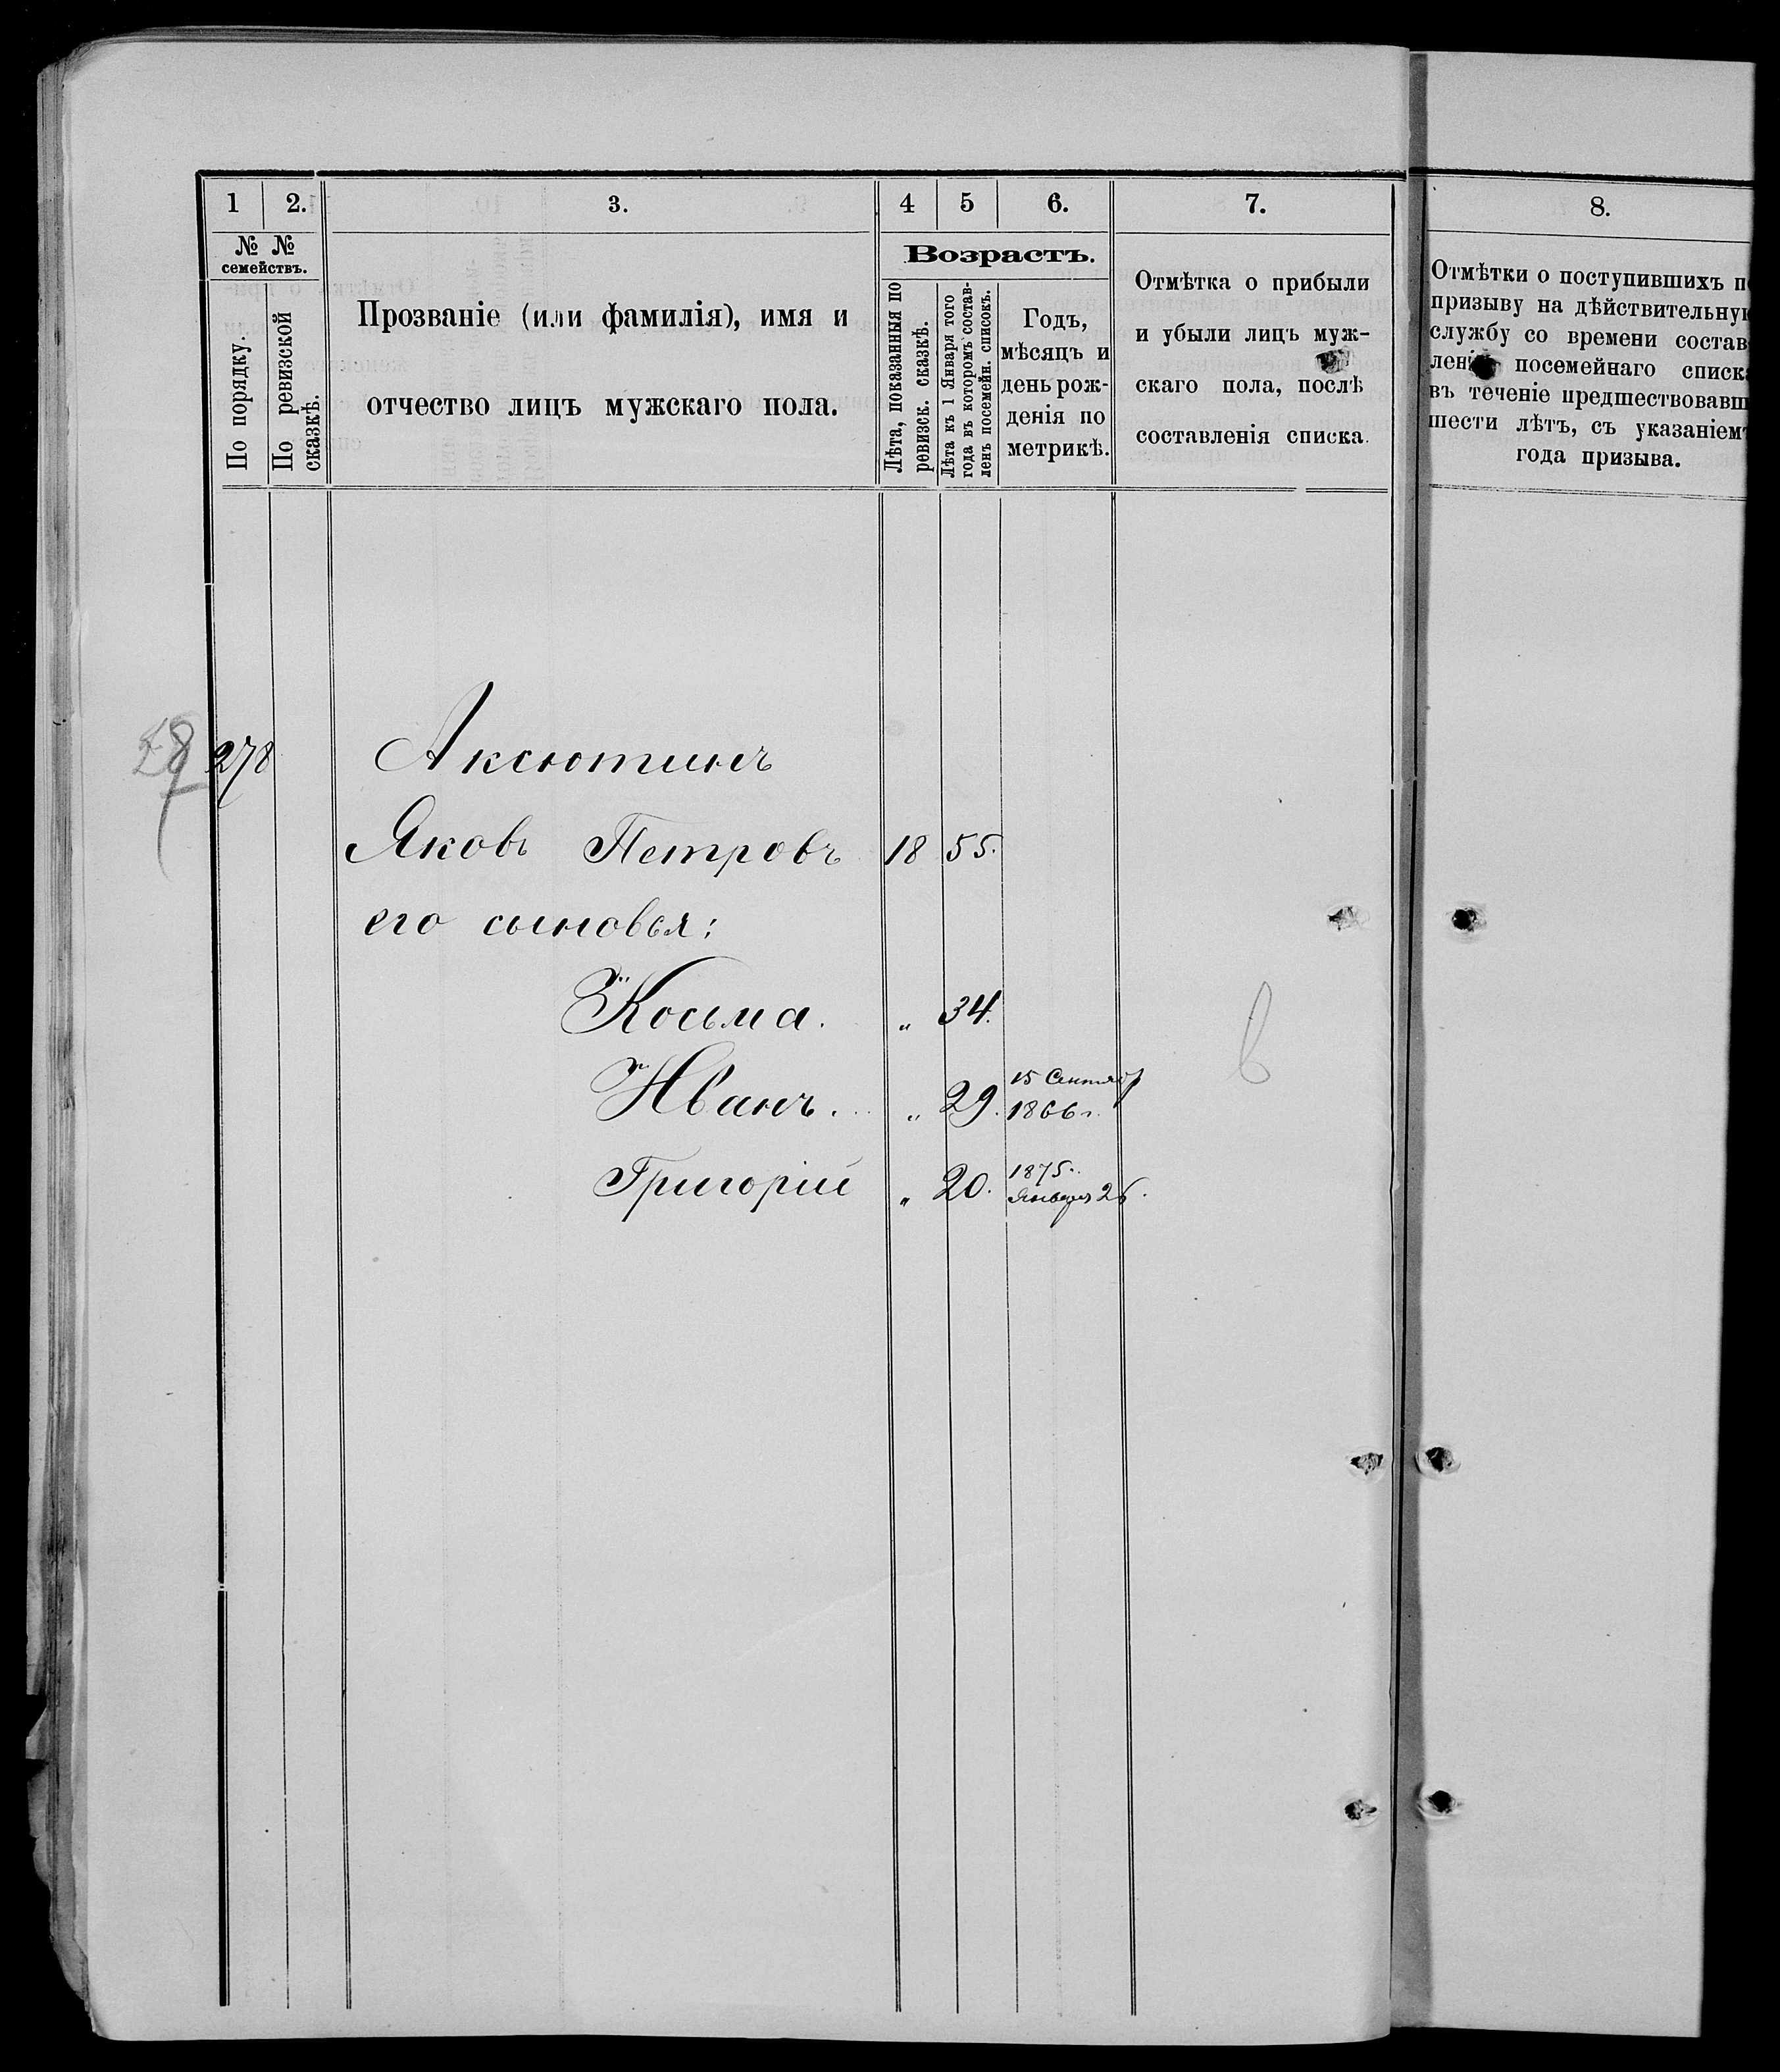 1 2. 3. 4 5 6. 7. 8.
№ №
семействъ.
По порядку.
По ревизской
сказкѣ.
Прозваніе (или фамилія), имя и
отчество лицъ мужскаго пола.
Возрастъ.
Лѣта, показанныя по
ревизск. сказкѣ.
Лѣта къ 1 Января того
года въ которомъ состав-
ленъ посемейн. списокъ.
Годъ,
мѣсяцъ и
день рож-
денія по
метрикѣ.
Отмѣтка о прибыли
и убыли лицъ муж-
скаго пола, послѣ
составленія списка.
Отмѣтки о поступившихъ п
призыву на дѣйствительну
службу со времени состав
лен посемейнаго списк
въ теченіе предшествовавш
шести лѣтъ, съ указаніем
года призыва.
278 Аксютинъ
Яковъ Петровъ 18 55.
его сыновья:
Косьма. " 34.
Иванъ. " 29. 15 Сентябр
1866 г.
Григорій " 20. 1875.
Января 26.